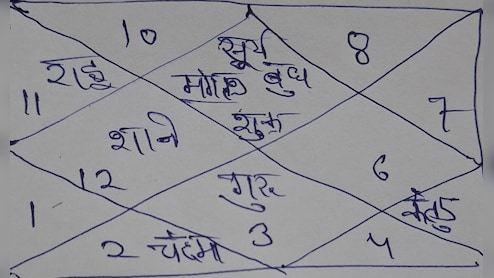 10
सूर्य
8
राहु
मंगल बुध
11
शुक्र
7
शनि
12
गुरु
6
1
केतु 5
2 चंद्रमा 3
4